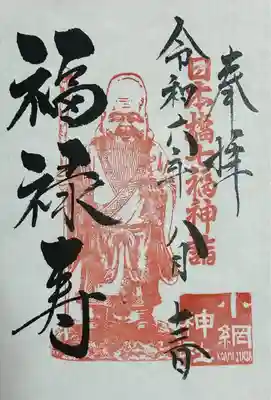 奉拝
日本橋七福神詣
令和六年八月
福禄寿
小網
神社
KOAMI JINJA